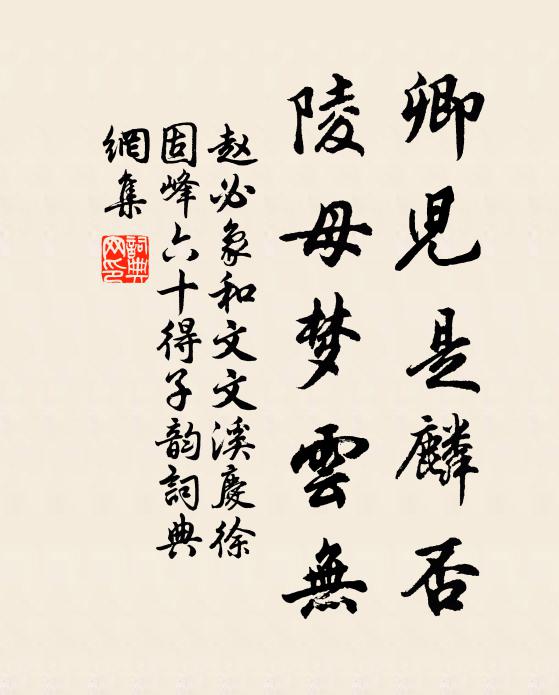 卿兒是麟否
陵母梦雲無
赵必象和文文溪慶徐
固峰六十得子韵詞典
網集
詞典
网印